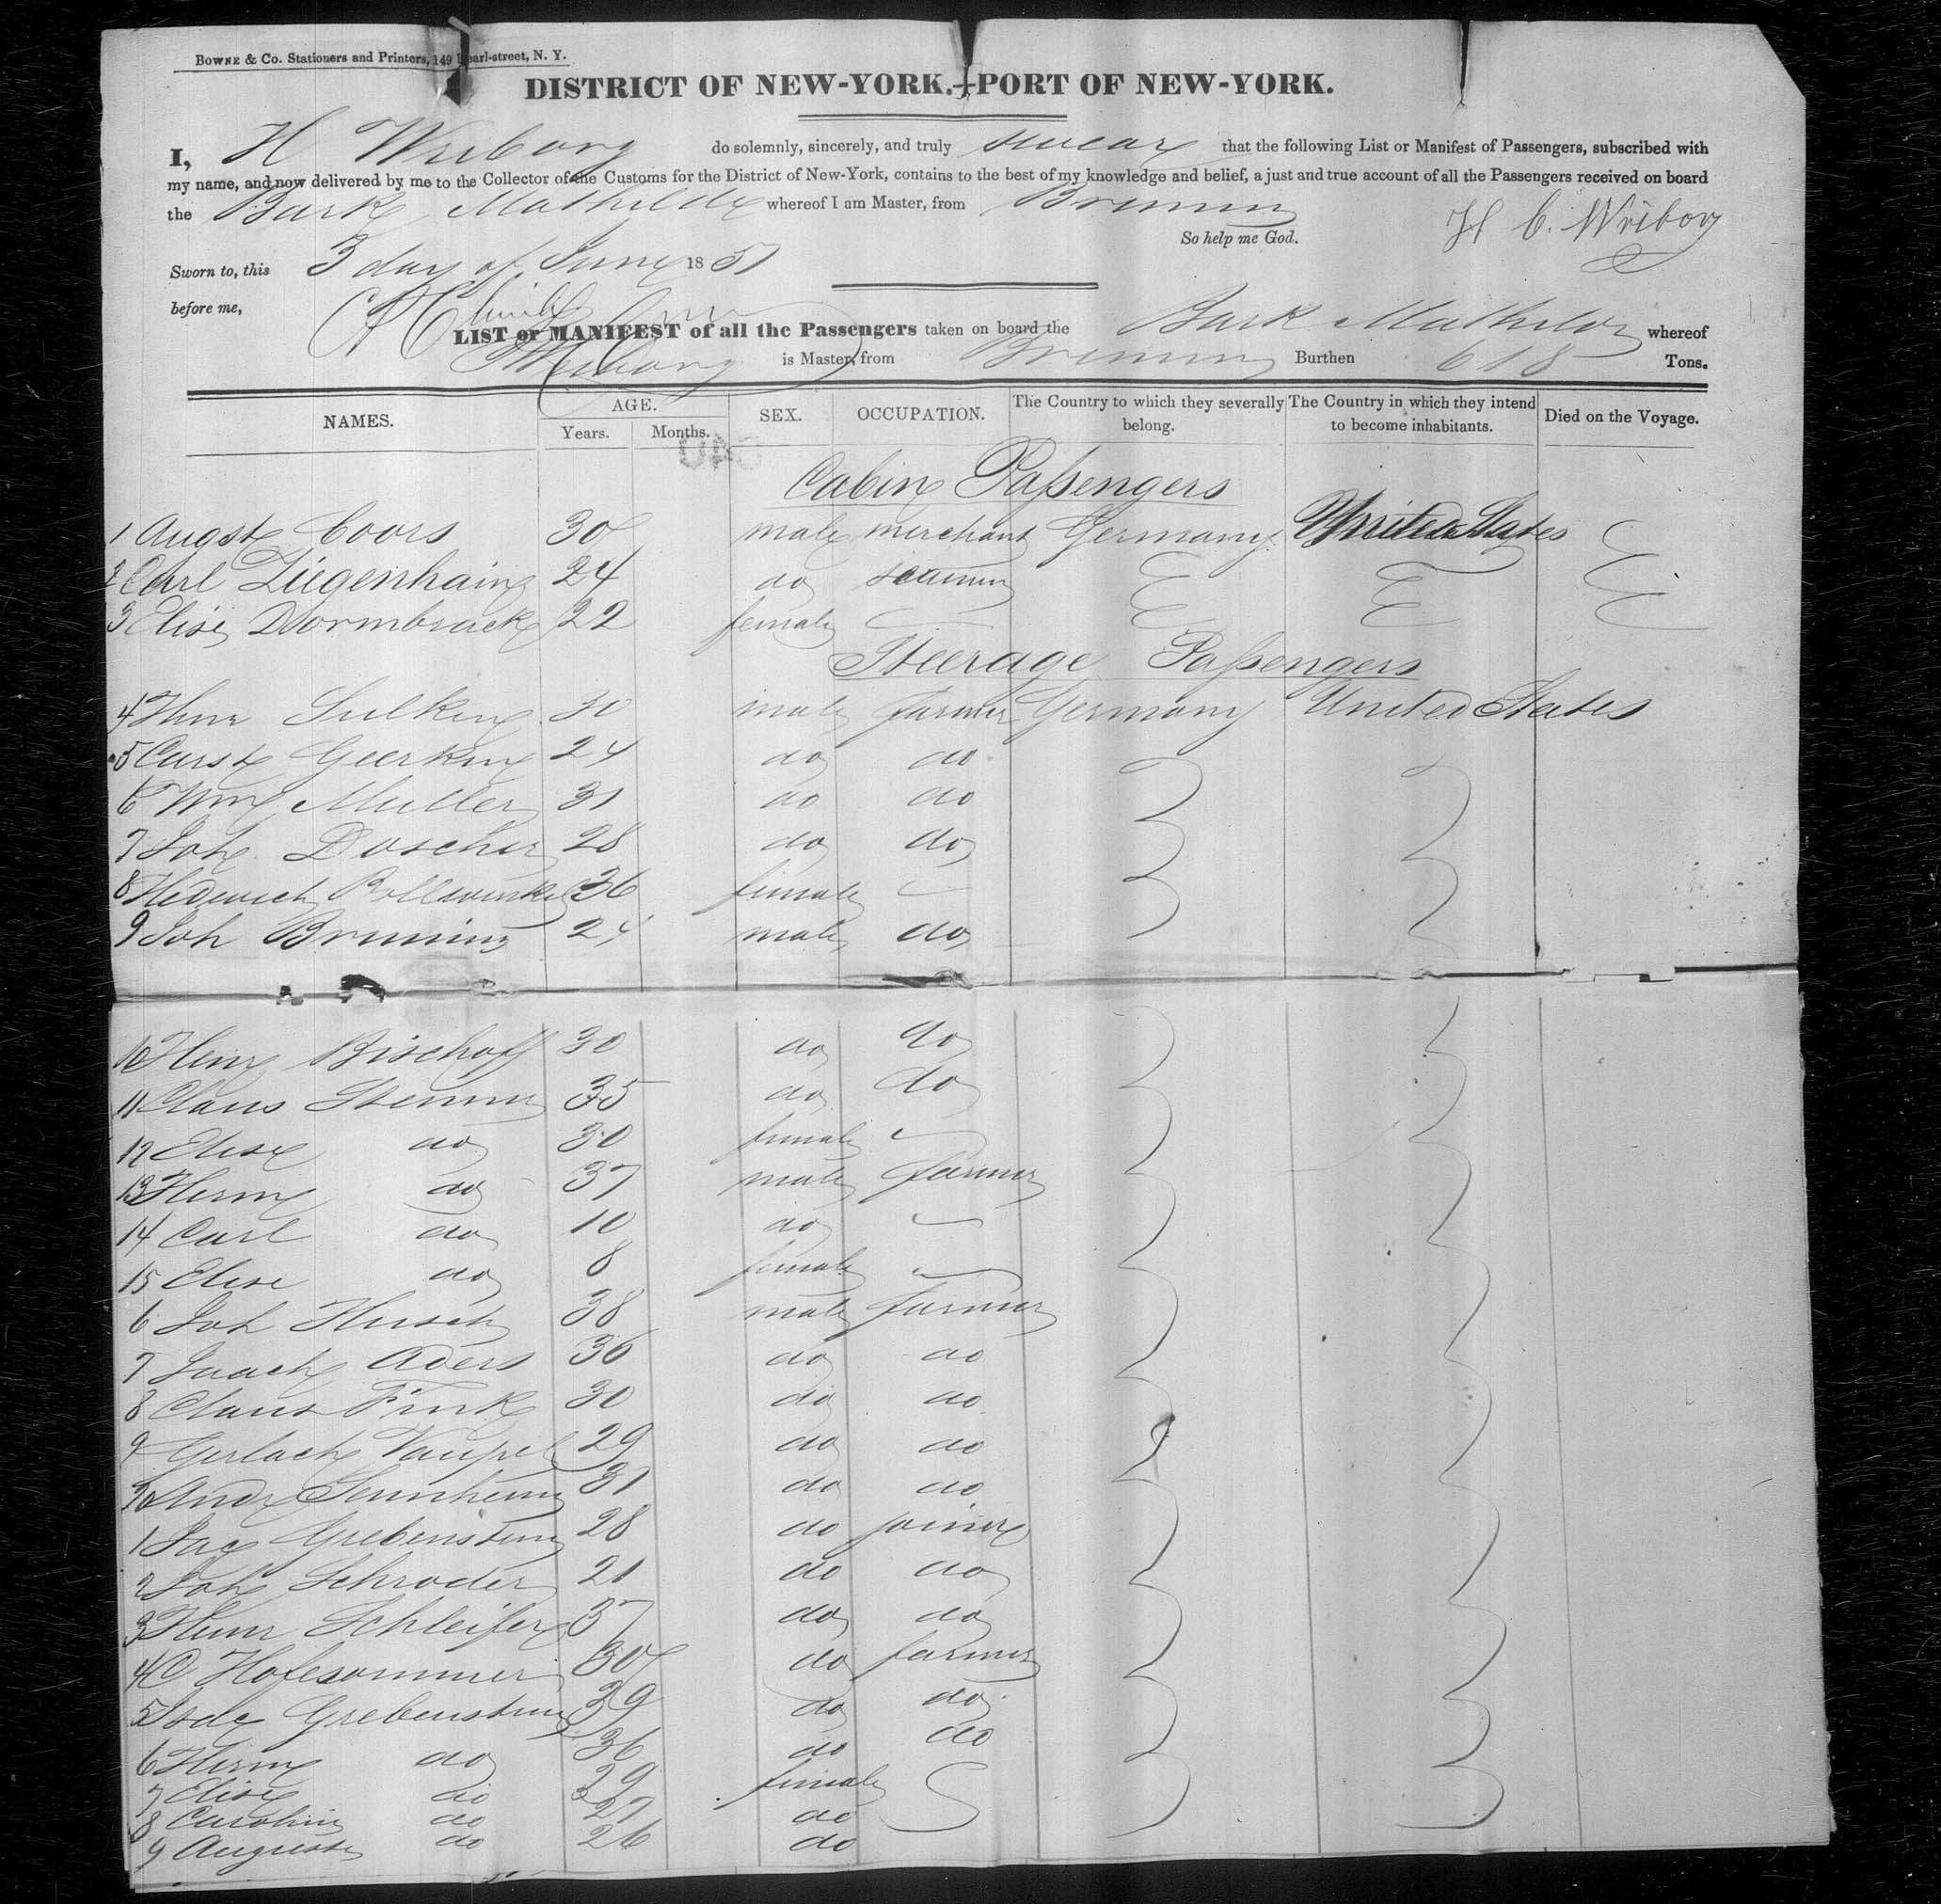 BOWNE & Co. Stationers and Printers, 149 Pearl-street, N. Y.
DISTRICT OF NEW-YORK.—PORT OF NEW-YORK.
I, H Wieborg do solemnly, sincerely, and truly swear that the following List or Manifest of Passengers, subscribed with
my name, and now delivered by me to the Collector of the Customs for the District of New-York, contains to the best of my knowledge and belief, a just and true account of all the Passengers received on board
the Bark Mathilde whereof I am Master, from Bremen
So help me God. H C. Wieborg
Sworn to, this 3 day of June 1851
before me,
LIST or MANIFEST of all the Passengers taken on board the Bark Mathilde whereof
Wieborg is Master, from Bremen Burthen 618 Tons.
NAMES. AGE. Years. Months. SEX. OCCUPATION. The Country to which they severally belong. The Country in which they intend to become inhabitants. Died on the Voyage.
Cabin Passengers
1 Augst Coors 30 male merchant Germany United States
2 Carl Ziegenhain 24 do
3 Elise Dormbrack 22 female
Steerage Passengers
4 Henr Sulking 30 male farmer Germany United States
5 Carst Geerking 24 do do
6 Wm Muller 31 do do
7 Joh Doscher 28 do do
8 36 female
9 Joh Bruning 24 male do
10 Henr Bischoff 30 do do
11 Claus 35 do do
12 Elise do 30 female
13 Herm do 37 male farmer
14 Carl do 10 do
15 Elise do 8 female
6 Joh Hirsch 38 male farmer
7 Aders 36 do do
8 Claus Fink 30 do do
9 Gerlach Vaupel 29 do do
20 Andr 31 do do
1 Jac Grebenstein 28 do joiner
2 Joh Schroder 21 do do
3 Henr Schleifer 37 do do
4 C Hofesommer 30 do farmer
5 Grebenstein 39 do do
6 Herm do 36 do do
7 Elise do 29 female
8 Caroline do 27 do
9 Auguste do 26 do